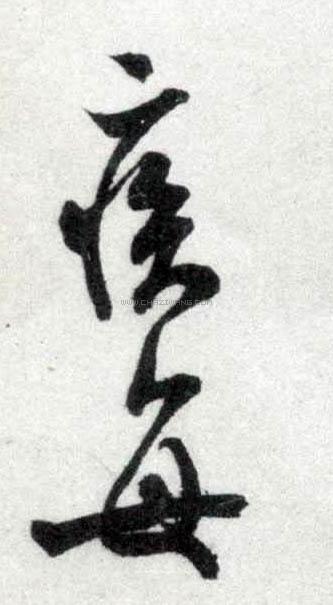 疾
每
WWW.CHAZIWANG.COM